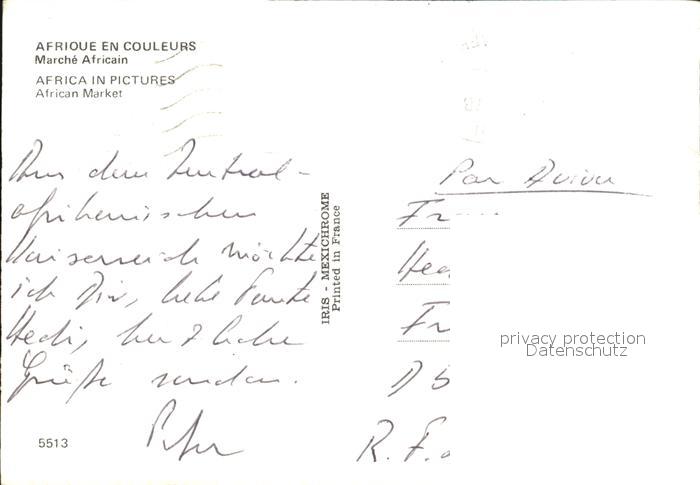 AFRIQUE EN COULEURS
Marché Africain
AFRICA IN PICTURES
African Market
Aus dem Zentral-
afrikanischen
Kaiserreich möchte
ich Dir, liebe Tante
Hedi, herzliche
Grüße senden.
Peter
5513
IRIS - MEXICHROME
Printed in France
Par Avion
Fr
Hed
Fr
D 5
R. F.
privacy protection
Datenschutz